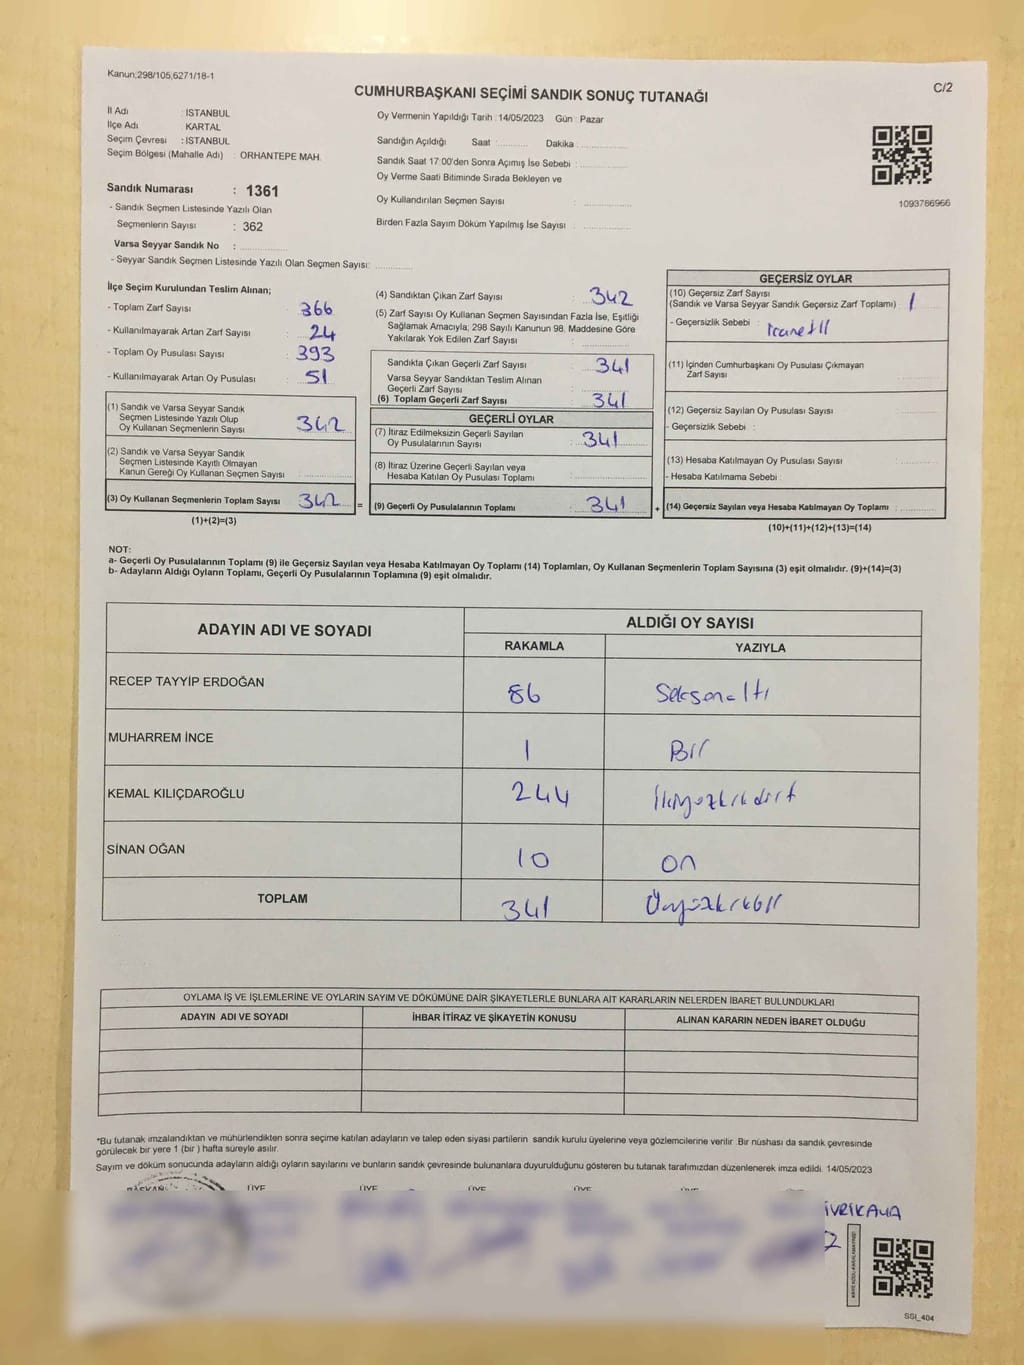 Kanun;298/105,6271/18-1
C/2
CUMHURBAŞKANI SEÇİMİ SANDIK SONUÇ TUTANAĞI
İl Adı : İSTANBUL
İlçe Adı : KARTAL
Seçim Çevresi : İSTANBUL
Seçim Bölgesi (Mahalle Adı) : ORHANTEPE MAH.
Sandık Numarası : 1361
- Sandık Seçmen Listesinde Yazılı Olan
Seçmenlerin Sayısı : 362
Varsa Seyyar Sandık No : ..............
- Seyyar Sandık Seçmen Listesinde Yazılı Olan Seçmen Sayısı: ............
Oy Vermenin Yapıldığı Tarih :14/05/2023 Gün : Pazar
Sandığın Açıldığı Saat :.......... Dakika :..............
Sandık Saat 17:00'den Sonra Açımış İse Sebebi :..............
Oy Verme Saati Bitiminde Sırada Bekleyen ve
Oy Kullandırılan Seçmen Sayısı : ..............
Birden Fazla Sayım Döküm Yapılmış İse Sayısı : ..............
1093786966
İlçe Seçim Kurulundan Teslim Alınan;
- Toplam Zarf Sayısı : 366
- Kullanılmayarak Artan Zarf Sayısı : 24
- Toplam Oy Pusulası Sayısı : 393
- Kullanılmayarak Artan Oy Pusulası : 51
(1) Sandık ve Varsa Seyyar Sandık
Seçmen Listesinde Yazılı Olup
Oy Kullanan Seçmenlerin Sayısı : 342
(2) Sandık ve Varsa Seyyar Sandık
Seçmen Listesinde Kayıtlı Olmayan
Kanun Gereği Oy Kullanan Seçmen Sayısı : ............
(3) Oy Kullanan Seçmenlerin Toplam Sayısı : 342
(1)+(2)=(3)
=
(4) Sandıktan Çıkan Zarf Sayısı : 342
(5) Zarf Sayısı Oy Kullanan Seçmen Sayısından Fazla İse, Eşitliği
Sağlamak Amacıyla; 298 Sayılı Kanunun 98. Maddesine Göre
Yakılarak Yok Edilen Zarf Sayısı : ............
Sandıkta Çıkan Geçerli Zarf Sayısı : 341
Varsa Seyyar Sandıktan Teslim Alınan
Geçerli Zarf Sayısı : ............
(6) Toplam Geçerli Zarf Sayısı : 341
GEÇERLİ OYLAR
(7) İtiraz Edilmeksizin Geçerli Sayılan
Oy Pusulalarının Sayısı : 341
(8) İtiraz Üzerine Geçerli Sayılan veya
Hesaba Katılan Oy Pusulası Toplamı : ............
(9) Geçerli Oy Pusulalarının Toplamı : 341
+
GEÇERSİZ OYLAR
(10) Geçersiz Zarf Sayısı
(Sandık ve Varsa Seyyar Sandık Geçersiz Zarf Toplamı) : 1
- Geçersizlik Sebebi :
(11) İçinden Cumhurbaşkanı Oy Pusulası Çıkmayan
Zarf Sayısı : ............
(12) Geçersiz Sayılan Oy Pusulası Sayısı : ............
- Geçersizlik Sebebi :
(13) Hesaba Katılmayan Oy Pusulası Sayısı : ............
- Hesaba Katılmama Sebebi :
(14) Geçersiz Sayılan veya Hesaba Katılmayan Oy Toplamı : ............
(10)+(11)+(12)+(13)=(14)
NOT:
a- Geçerli Oy Pusulalarının Toplamı (9) ile Geçersiz Sayılan veya Hesaba Katılmayan Oy Toplamı (14) Toplamları, Oy Kullanan Seçmenlerin Toplam Sayısına (3) eşit olmalıdır. (9)+(14)=(3)
b- Adayların Aldığı Oyların Toplamı, Geçerli Oy Pusulalarının Toplamına (9) eşit olmalıdır.
ADAYIN ADI VE SOYADI ALDIĞI OY SAYISI
RAKAMLA YAZIYLA
RECEP TAYYİP ERDOĞAN 86 Seksenaltı
MUHARREM İNCE 1 Bir
KEMAL KILIÇDAROĞLU 244 İkiyüzkırkdört
SİNAN OĞAN 10 on
TOPLAM 341 Üçyüzkırkbir
OYLAMA İŞ VE İŞLEMLERİNE VE OYLARIN SAYIM VE DÖKÜMÜNE DAİR ŞİKAYETLERLE BUNLARA AİT KARARLARIN NELERDEN İBARET BULUNDUKLARI
ADAYIN ADI VE SOYADI İHBAR İTİRAZ VE ŞİKAYETİN KONUSU ALINAN KARARIN NEDEN İBARET OLDUĞU
*Bu tutanak imzalandıktan ve mühürlendikten sonra seçime katılan adayların ve talep eden siyasi partilerin sandık kurulu üyelerine veya gözlemcilerine verilir. Bir nüshası da sandık çevresinde
görülecek bir yere 1 (bir ) hafta süreyle asılır.
Sayım ve döküm sonucunda adayların aldığı oyların sayılarını ve bunların sandık çevresinde bulunanlara duyurulduğunu gösteren bu tutanak tarafımızdan düzenlenerek imza edildi. 14/05/2023
BAŞKAN ÜYE ÜYE ÜYE ÜYE
İVRİKAYA
SSI_404